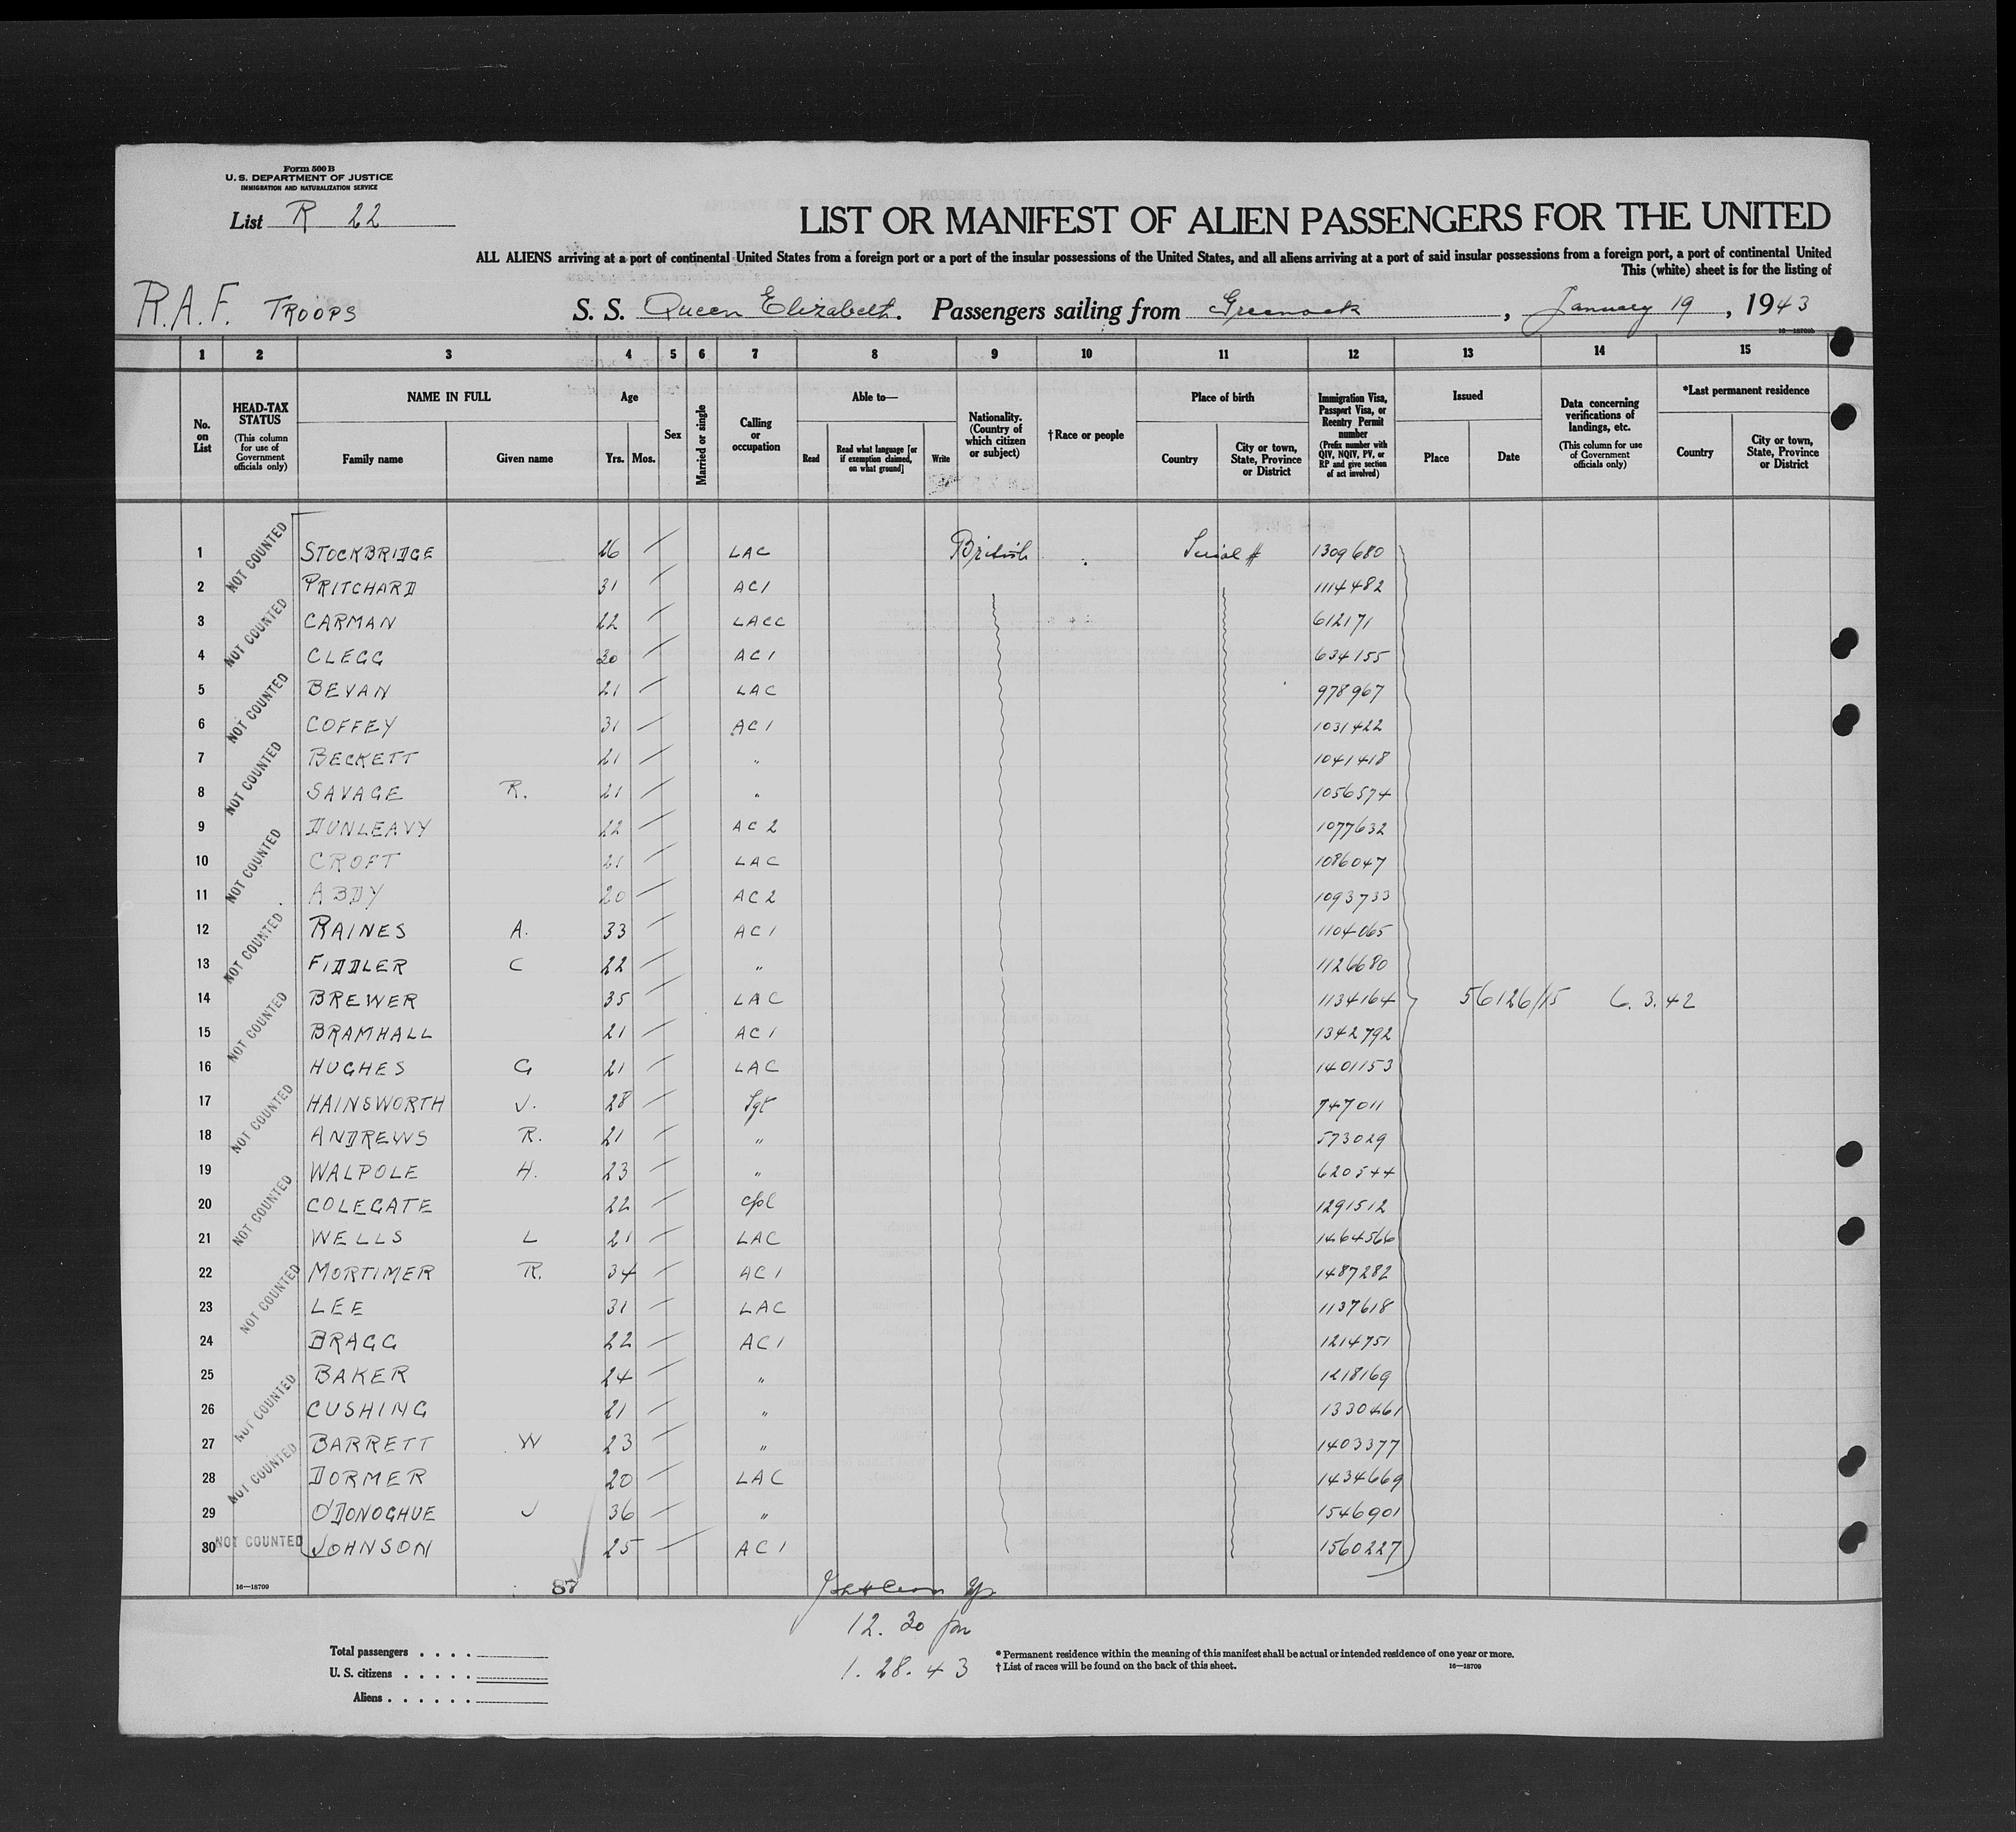 Form 500 B
U. S. DEPARTMENT OF JUSTICE
IMMIGRATION AND NATURALIZATION SERVICE
List R 22
LIST OR MANIFEST OF ALIEN PASSENGERS FOR THE UNITED
ALL ALIENS arriving at a port of continental United States from a foreign port or a port of the insular possessions of the United States, and all aliens arriving at a port of said insular possessions from a foreign port, a port of continental United
This (white) sheet is for the listing of
R.A.F. TROOPS S. S. Queen Elizabeth. Passengers sailing from Greenock, January 19, 1943
1 2 3 4 5 6 7 8 9 10 11 12 13 14 15
No. on List
HEAD-TAX STATUS (This column for use of Government officials only)
NAME IN FULL Family name Given name
Age Yrs. Mos.
Sex
Married or single
Calling or occupation
Able to— Read Read what language [or if exemption claimed, on what ground] Write
Nationality. (Country of which citizen or subject)
† Race or people
Place of birth Country City or town, State, Province or District
Immigration Visa, Passport Visa, or Reentry Permit number (Prefix number with QIV, NQIV, PV, or RP and give section of act involved)
Issued Place Date
Data concerning verifications of landings, etc. (This column for use of Government officials only)
*Last permanent residence Country City or town, State, Province or District
1 NOT COUNTED STOCKBRIDGE 26 LAC British Serial # 1309680
2 PRITCHARD 31 AC1 1114482
3 NOT COUNTED CARMAN 22 LACC 612171
4 CLEGG 30 AC1 634155
5 NOT COUNTED BEVAN 21 LAC 978967
6 COFFEY 31 AC1 1031422
7 NOT COUNTED BECKETT 21 " 1041418
8 SAVAGE R. 21 " 1056574
9 DUNLEAVY 22 AC2 1077632
10 NOT COUNTED CROFT 21 LAC 1086047
11 ABDY 20 AC2 1093733
12 NOT COUNTED RAINES A. 33 AC1 1104065
13 FIDDLER C 22 " 1126680
14 NOT COUNTED BREWER 35 LAC 1134164 56126/15 6.3.42
15 BRAMHALL 21 AC1 1342792
16 HUGHES G 21 LAC 1401153
17 NOT COUNTED HAINSWORTH J. 28 Sgt 747011
18 ANDREWS R. 21 " 573029
19 WALPOLE H. 23 " 620544
20 NOT COUNTED COLEGATE 22 Cpl 1291512
21 WELLS L 21 LAC 1464566
22 MORTIMER R. 34 AC1 1487282
23 NOT COUNTED LEE 31 LAC 1137618
24 BRAGG 22 AC1 1214751
25 BAKER 24 " 1218169
26 NOT COUNTED CUSHING 21 " 1330461
27 BARRETT W 23 " 1403377
28 NOT COUNTED DORMER 20 LAC 1434669
29 O'DONOGHUE J 36 " 1546901
30 NOT COUNTED JOHNSON 25 AC1 1560227
16—18709 87
12. 30 pm
1. 28. 43
Total passengers
U. S. citizens
Aliens
* Permanent residence within the meaning of this manifest shall be actual or intended residence of one year or more.
† List of races will be found on the back of this sheet. 16—18709